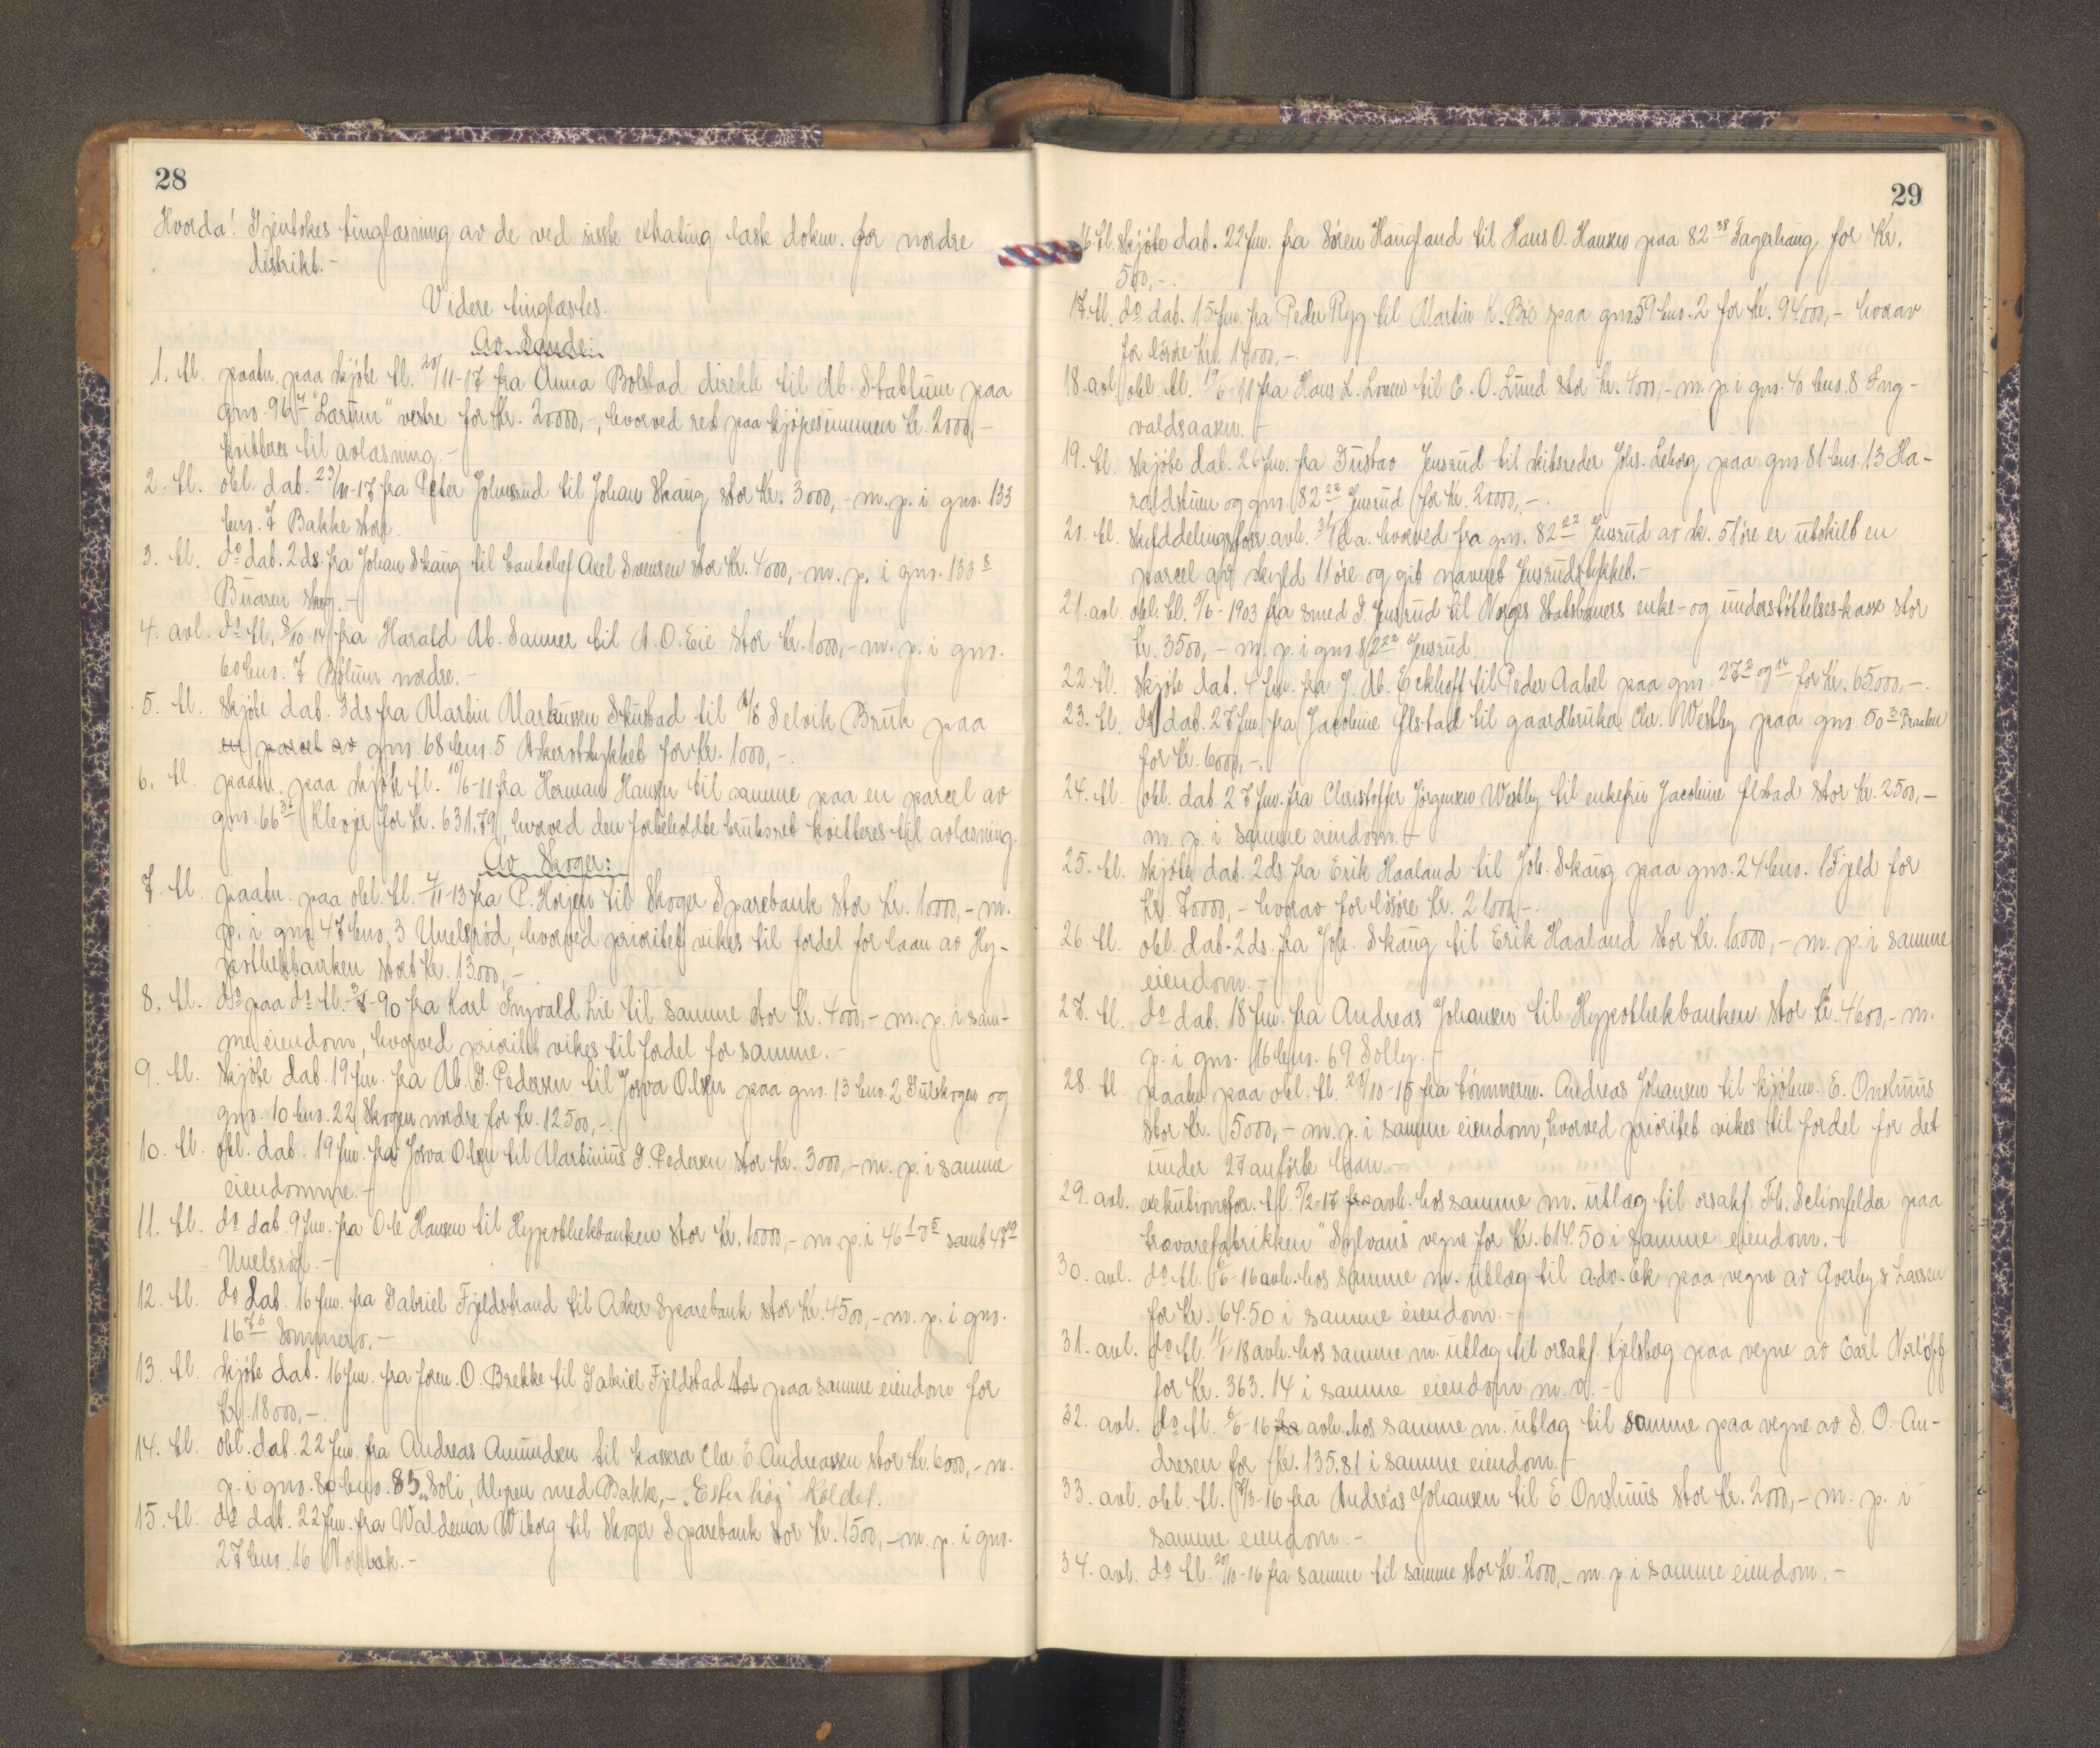 28
Hvorda! Gjentokes tinglæsning av de ved siste extrating læste dokm. for nordre
distrikt.-
Videre tinglæstes.
Av Sande:
1. tl. paatn. paa skjøte tl. 20/11-17 fra Anna Bolstad direkte til Ab. Stablum paa
gno. 96 "Lærum" vestre for Kr. 20.000,-, hvorved ret paa kjøpesummen Kr. 2000,-
kvitteres til avlæsning.-
2. tl. obl. dat. 23/11-17 fra Peter Johnsrud til Johan Skaug stor Kr. 3000,- m. p. i gno. 133
bno. 7 Bakke store.
3. tl. do dat. 2 ds. fra Johan Skaug til bankchef Axel Svensen stor Kr. 4000,- m. p. i gno. 133 8
Buaren skog.-
4. avl. do tl. 8/10-14 fra Harald Ab. Sanner til A. O. Eie stor Kr. 1000,- m. p. i gno.
60 bno. 7 Bølum nordre.-
5. tl. skjøte dat. 3 ds fra Martin Markussen Skustad til A/S Selvik Bruk paa
en parcel av gno. 68 bno. 5 Askerotstykket for Kr. 1000,-.
6. tl. paatn. paa skjøte tl. 10/6-11 fra Herman Hansen til samme paa en parcel av
gno. 66 Klevjer for Kr. 631,79, hvorved den forbeholdte bruksret kvitteres til avlæsning.
Av Skoger:
7. tl. paatn. paa obl. tl. 4/11-13 fra P. Horjen til Skoger Sparebank stor Kr. 10000,- m.
p. i gno. 47 bno. 3 Unelsrød, hvorved prioritet vikes til fordel for laan av Hy-
pothekbanken stort Kr. 13.000,-
8. tl. do paa do tl. -90 fra Karl Ingvald Lie til samme stor Kr. 4000,- m. p. i sam-
me eiendom, hvorved prioritet vikes til fordel for samme.-
9. tl. skjøte dat. 19 fm. fra Ab. G. Pedersen til Josva Olsen paa gno. 13 bno. 2 Gulskogen og
gno. 10 bno. 22 Skogen nordre for Kr. 12500,-.
10. tl. obl. dat. 19 fm. fra Josva Olsen til Martinius G. Pedersen stor Kr. 3000,- m. p. i samme
eiendomme.-
11. tl. do dat. 9 fm. fra Ole Hansen til Hypothekbanken stor Kr. 10000,- m. p. i 46 samt 47
Unelsrød.-
12. tl. do dat. 16 fm. fra Gabriel Fjeldstrand til Aker Sparebank stor Kr. 4500,- m. p. i gno.
16 76 Sommero.-
13. tl. skjøte dat. 16 fm. fra Joren. O. Brekke til Gabriel Fjeldstad stor paa samme eiendom for
Kr. 18000,-.
14. tl. obl. dat. 22 fm. fra Andreas Amundsen til kasserer Chr. E. Andreassen stor Kr. 6000,- m.
p. i gno. 80 bno. 85 Soli, Myren med Bakke,- "Esterhøi" Koldet.
15. tl. do dat. 22 fm. fra Waldemar Wiborg til Skoger Sparebank stor Kr. 1500,- m. p. i gno.
27 bno. 16 Norbæk.-
29
16. tl. Skjøte dat. 22 fm. fra Søren Haugland til Hans O. Hansen paa 82 38 Fagerhaug for Kr.
500,-.
17. tl. do dat. 15 fm. fra Peder Ryg til Martin K. Bøe paa gno. 59 bno. 2 for Kr. 94000,- hvorav
for løsøre Kr. 14000,-.
18. avl. obl. tl. 19/6-11 fra Hans L. Loxen til E. O. Lund stor Kr. 4000,- m. p. i gno. 6 bno. 8 Ing-
valdsaasen.-
19. tl. skjøte dat. 26 fm. fra Gustav Jensrud til skibsreder Johs. Leborg paa gno. 81 bno. 13 Ha-
raldstuen og gno. 82 22 Jensrud for Kr. 20000,-.
20. tl. skylddelingsforr. avh. 3/1 d.a. hvorved fra gno. 82 22 Jensrud av sk. 51 øre er utskilt en
parcel av skyld 11 øre og git navnet Jensrudstykket.-
21. avl. obl. tl. 5/6-1903 fra smed G. Jensrud til Norges Statsbaners enke- og understøttelseskasse stor
Kr. 3500,- m. p. i gno. 82 22 Jensrud.
22. tl. skjøte dat. 4 fm. fra J. Ab. Eckhoff til Peder Aabel paa gno. 27 2 og 14 for Kr. 65000,-.
23. tl. do dat. 27 fm. fra Jacobine Ilstad til gaardbruker Chr. Westby paa gno. 50 3 Braaten
for Kr. 6000,-.
24. tl. obl. dat. 27 fm. fra Christoffer Jørgensen Westby til enkefru Jacobine Ilstad stor Kr. 2500,-
m. p. i samme eiendom.-
25. tl. skjøte dat. 2 ds. fra Erik Haaland til Joh. Skaug paa gno. 24 bno. 1 Fjeld for
Kr. 70000,- hvorav for løsøre Kr. 21000,-.
26 tl. obl. dat. 2 ds. fra Joh. Skaug til Erik Haaland stor Kr. 10.000,- m. p. i samme
eiendom.-
27. tl. do dat. 18 fm. fra Andreas Johansen til Hypothekbanken stor Kr. 4600,- m.
p. i gno. 16 bno. 69 Solby.-
28. tl. paatn. paa obl. tl. 28/10-15 fra tømmerm. Andreas Johansen til kjøbm. E. Onshuus
stor Kr. 5000,- m. p. i samme eiendom, hvorved prioritet vikes til fordel for det
under 27 anførte laan.-
29. avl. exekutionsforr. tl. 5/2-17 fra avh. hos samme m. utlæg til orsakf. Th. Schønfelder paa
trævarefabrikken "Sylvans" vegne for Kr. 614.50 i samme eiendom.-
30. avl. do tl. 6/6-16 avh. hos samme m. utlæg til adv. Ek paa vegne av Qverby & Larsen
for Kr. 64.50 i samme eiendom.-
31. avl. do tl. 11/1 18 avh. hos samme m. utlæg til orsakf. Kjelsberg paa vegne av Carl Norløff
for Kr. 363.14 i samme eiendom m. v.-
32. avl. do tl. 6/6-16 fra avh. hos samme m. utlæg til samme paa vegne av S. O. An-
dresen for Kr. 135.81 i samme eiendom.-
33. avl. obl. tl. 7/3-16 fra Andreas Johansen til E. Onshuus stor Kr. 2000,- m. p. i
samme eiendom.-
34. avl. do tl. 20/10-16 fra samme til samme stor Kr. 2000,- m. p. i samme eiendom.-